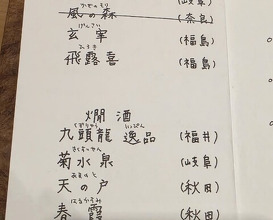 (岐阜)
かぜのもり
風の森 (奈良)
げんさい
玄宰 (福島)
ひろき
飛露喜 (福島)
燗酒
くずりゅう いっぴん
九頭龍 逸品 (福井)
きくすいせん
菊水泉 (岐阜)
あまのと
天の戸 (秋田)
はるかすみ
春霞 (秋田)